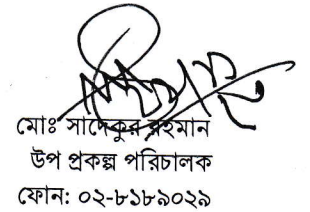 মোঃ সাদেকুর রহমান
উপ প্রকল্প পরিচালক
ফোন: ০২-৮১৮৯০২৯